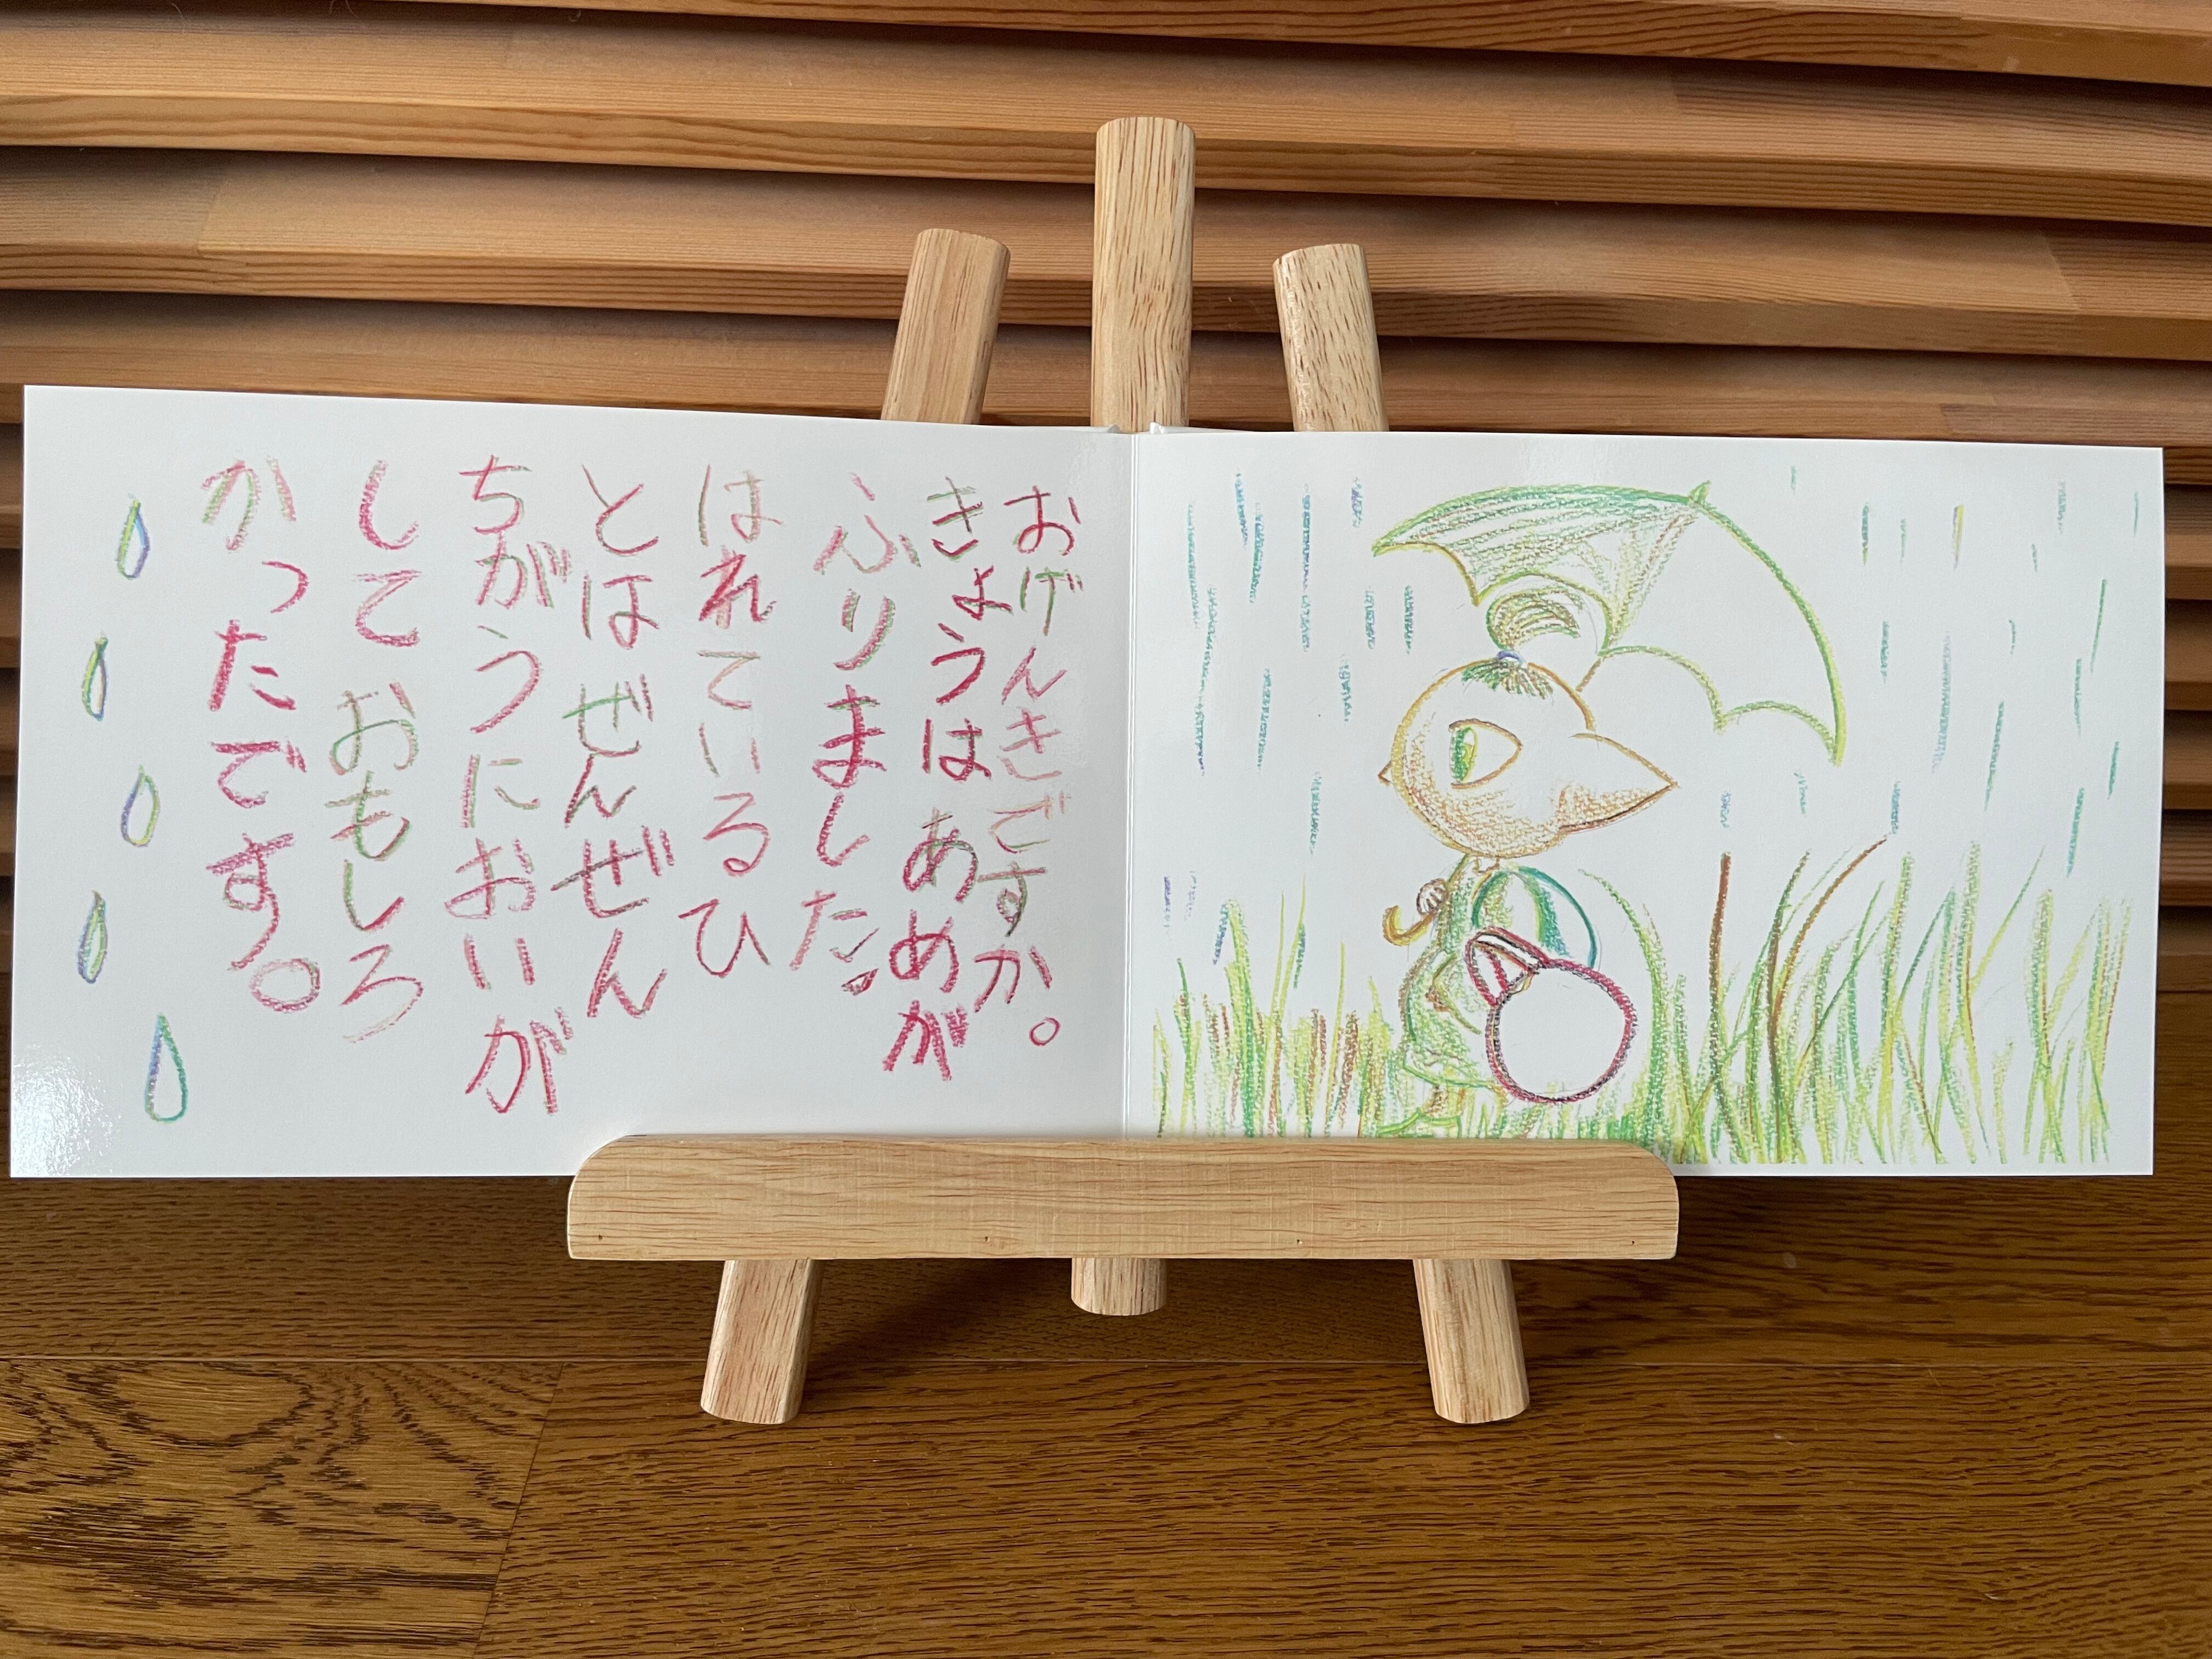 おげんきですか。
きょうは あめが
ふりました。
はれているひ
とは ぜんぜん
ちがうにおいが
して おもしろ
かったです。